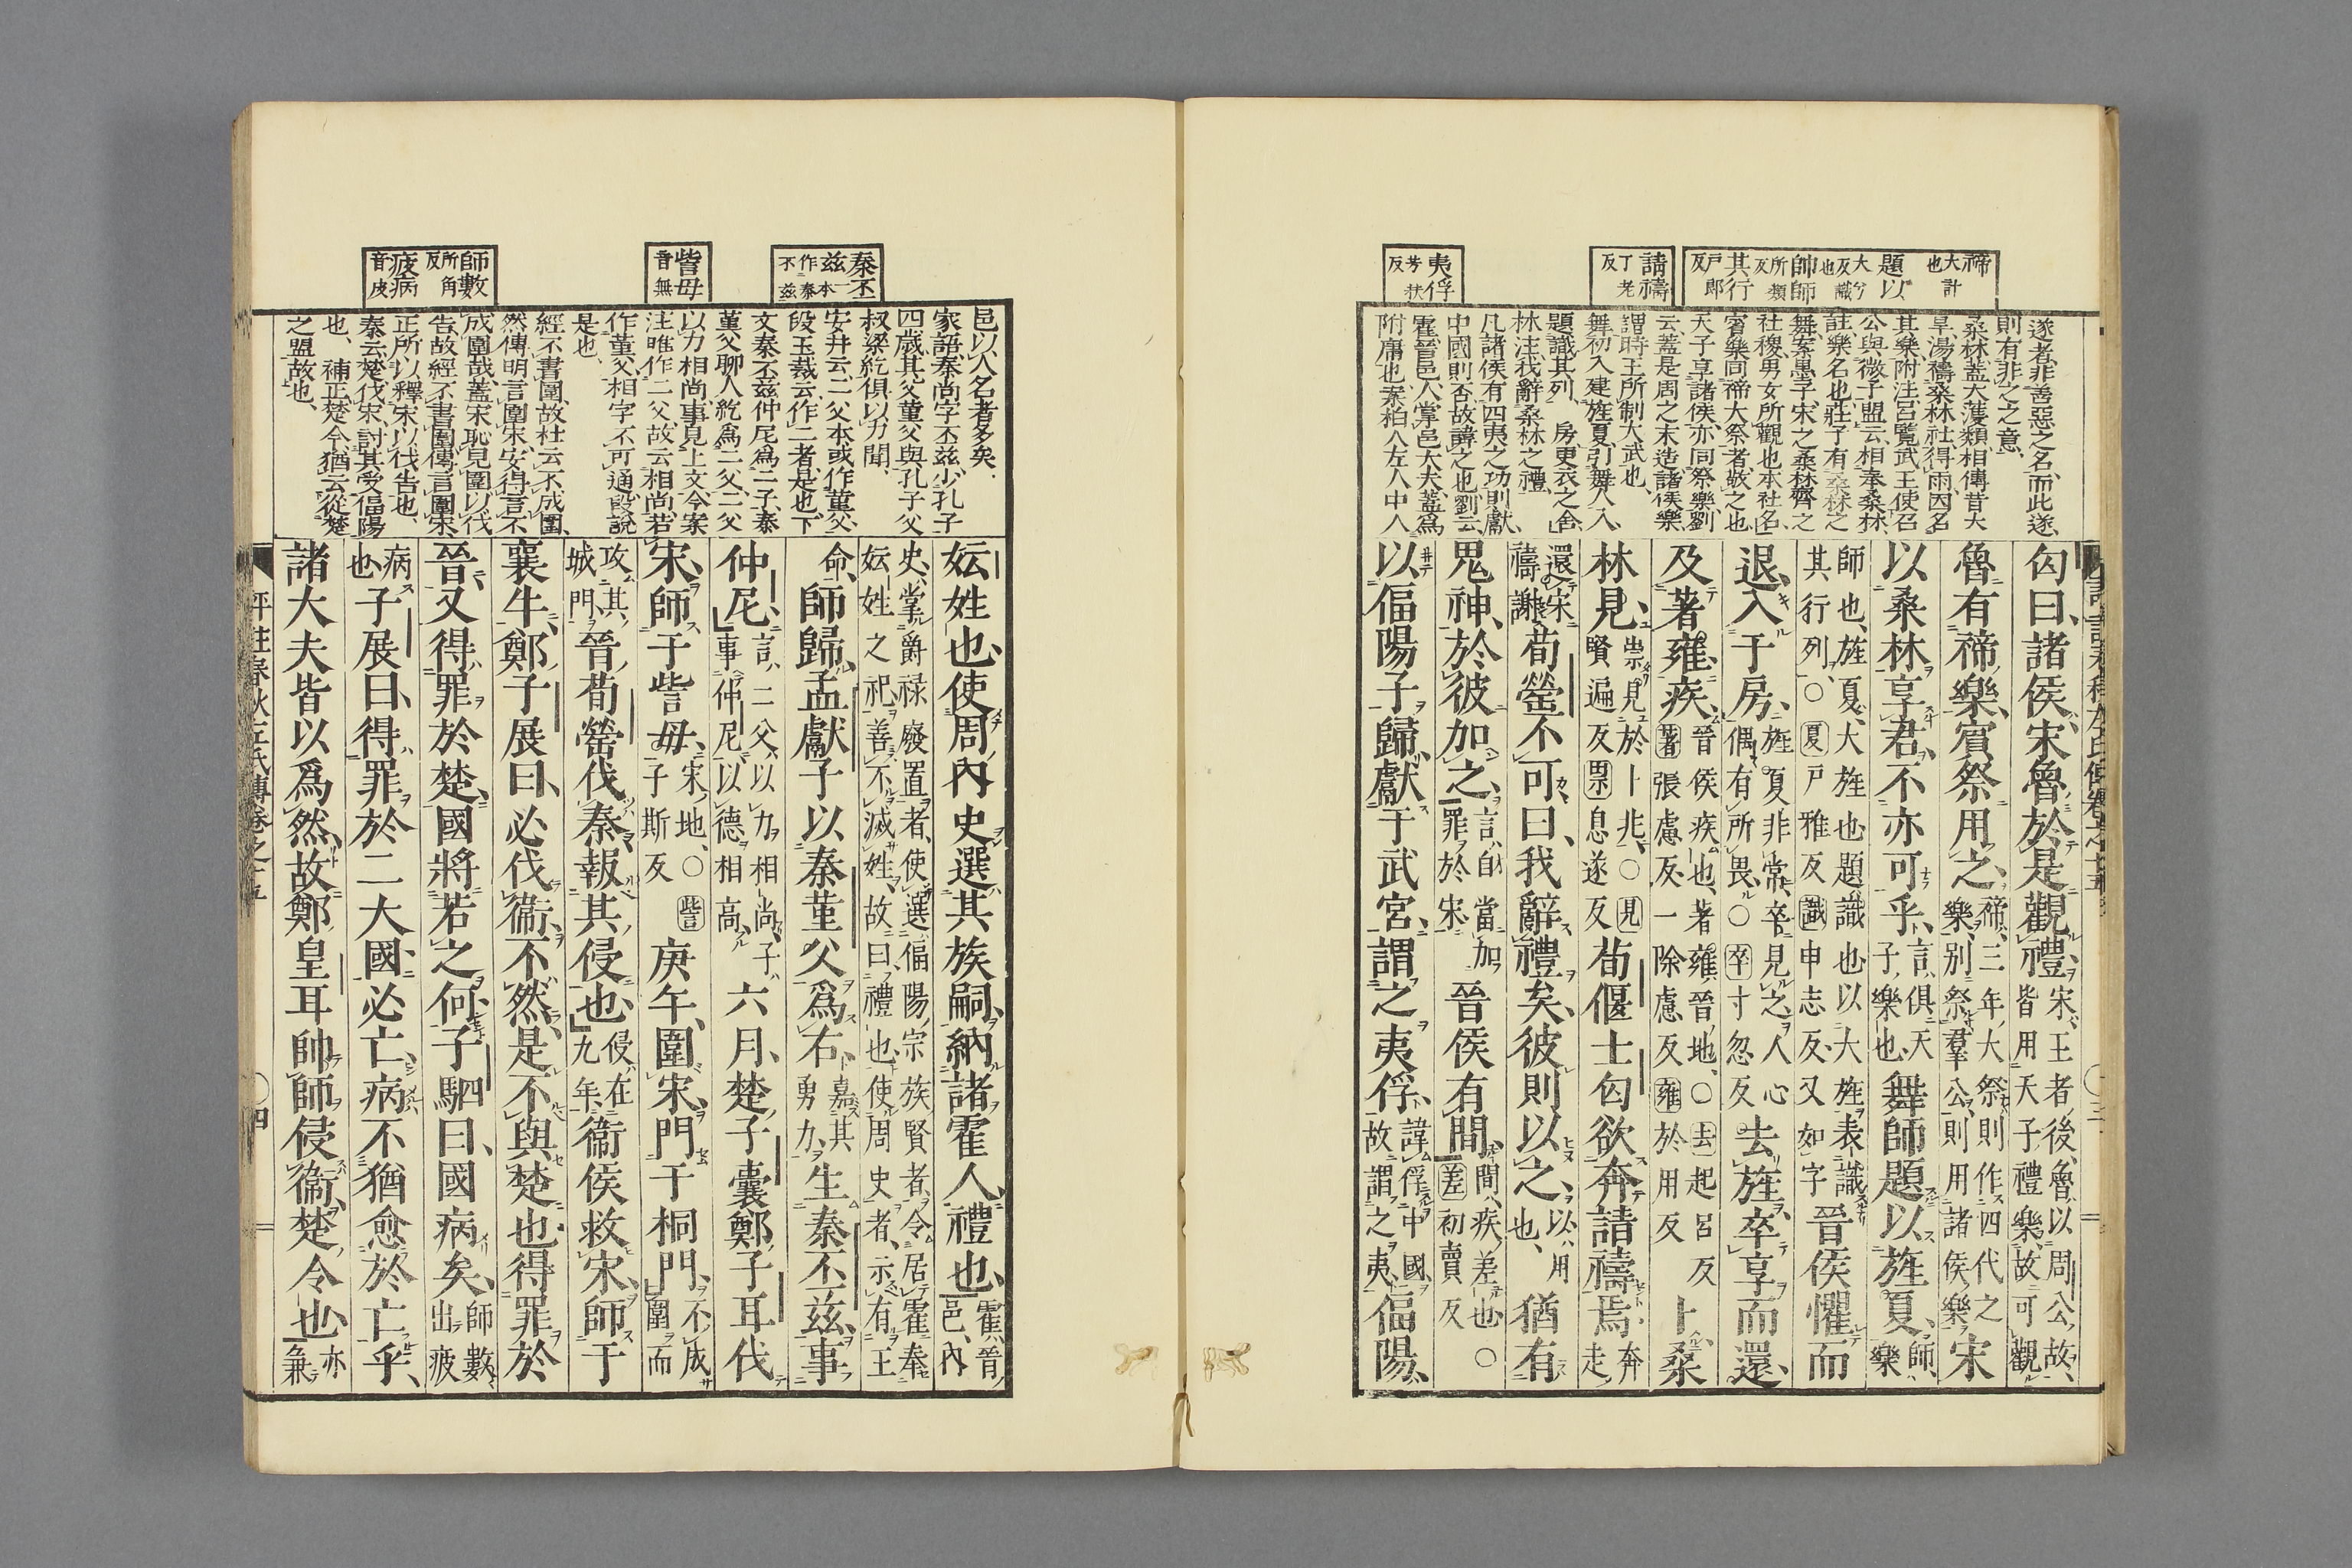 禘大計也 題以大兮反識也 帥師所類反 其行戶郎反
請禱丁老反
夷俘芳扶反
遂者非善惡之名而此遂
則有非之之意
桑林蓋大濩類相傳昔大
旱湯禱桑林社得雨因名
其樂附注呂覽武王使召
公與微子盟云相奉桑林
註樂名也莊子有桑林之
舞案墨子宋之桑林齊之
社稷男女所觀也本社名
賓樂同禘大祭者敬之也
天子享諸侯亦同祭樂劉
云蓋是周之末造諸侯樂
謂時王所制大武也
舞初入建旌夏引舞人入
題識其列 房更衣之舍
林注我辭桑林之禮
凡諸侯有四夷之功則獻
中國則否故諱之也劉云
霍晉邑人掌邑大夫蓋爲
附庸也案柏人左人中人
匄曰諸侯宋魯於是觀禮宋王者後魯以周公故皆用天子禮樂故可觀
魯有禘樂賓祭用之禘三年大祭則作四代之樂別祭羣公則用諸侯樂宋
以桑林享君不亦可乎言俱天子樂也舞師題以旌夏師樂
師也旌夏大旌也題識也以大旌表識其行列○夏戶雅反識申志反又如字晉侯懼而
退入于房旌夏非常卒見之人心偶有所畏○卒寸忽反去旌卒享而還
及著雍疾晉侯疾也著雍晉地○著張慮反一除慮反雍於用反去起呂反卜桑
林見崇見於卜兆○見賢遍反祟息遂反荀偃士匄欲奔請禱焉奔走
還宋禱謝荀罃不可曰我辭禮矣彼則以之以用也猶有
鬼神於彼加之言自當加罪於宋晉侯有間間疾差也○差初賣反
以偪陽子歸獻于武宮謂之夷俘諱俘中國故謂之夷偪陽
秦丕茲一本作秦不茲
訾毋音無
師數所角反 疲病音皮
邑以人名者多矣
家語秦尚字丕茲少孔子
四歲其父董父與孔子父
叔梁紇俱以力聞
安井云二父本或作董父
段玉裁云作二者是也下
文秦丕茲仲尼爲二子秦
董父聊人紇爲二父二父
以力相尚事見上文今案
注唯作二父故云相尚若
作董父相字不可通段說
是也
經不書圍故杜云不成圍
然傳明言圍宋安得言不
成圍哉蓋宋恥見圍以伐
告故經不書圍傳言圍宋
正所以釋宋以伐告也
秦云楚伐宋討其受偪陽
也 補正楚令猶云從楚
之盟故也
妘姓也使周內史選其族嗣納諸霍人禮也霍晉邑內
史掌爵祿廢置者使選偪陽宗族賢者令居霍奉妘姓之祀善不滅姓故曰禮也使周史者示有王
命師歸孟獻子以秦堇父爲右嘉其勇力生秦丕茲事
仲尼言二父以力相尚子事仲尼以德相高六月楚子囊鄭子耳伐
宋師于訾毋宋地○訾子斯反庚午圍宋門于桐門不成圍而
攻其城門晉荀罃伐秦報其侵也侵在九年衞侯救宋師于
襄牛鄭子展曰必伐衞不然是不與楚也得罪於
晉又得罪於楚國將若之何子駟曰國病矣師數出疲
病也子展曰得罪於二大國必亡病不猶愈於亡乎
諸大夫皆以爲然故鄭皇耳帥師侵衞楚令也亦兼
評註春秋左氏傳卷之十五
○四